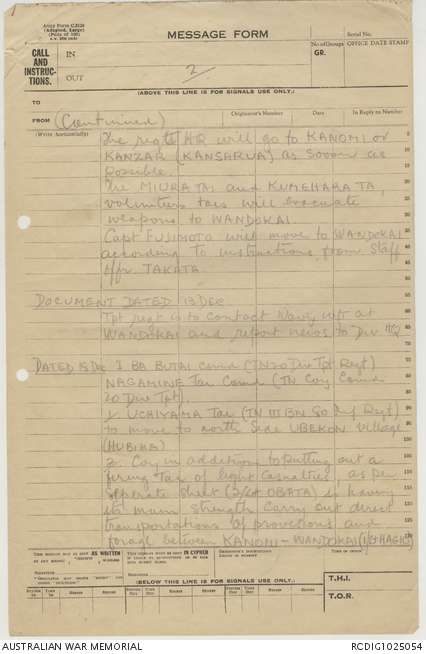 Army Form C.2128
(Adapted, Large)
(Pads of 100)
MESSAGE FORM
Serial No.
CALL
AND
INSTRUC-
TIONS.
IN
OUT
2
No. of Groups
GR.
OFFICE DATE STAMP
(ABOVE THIS LINE IS FOR SIGNALS USE ONLY.)
TO
FROM (Continued)
Originator's Number
Date
In Reply to Number
(Write horizontally)
The regts HQ will go to KANOMI or
KANZAR (KANSARUA) as soon as
possible.
The MIURA TAI and KUMEHARA TA
volunteers tais will evacuate
weapons to WANDOKAI
Capt FUJIMOTO will move to WANDOKAI
according to instructions from Staff
offr. TAKATA.
DOCUMENT DATED 13 DEC
Tpt regt is to contact Navy unit at
WANDOKAI and report news to Div HQ
DATED 15 Dec I BA BUTAI comd (TN 20 Div Tpt Regt)
NAGAMINE Tai Comd (TN Coy Comd
20 Div Tpt).
1. UCHIYAMA Tai (TN III BN 80 Inf Regt)
to move to north side UBEKON Village
(HUBIKA)
2. Coy in addition to putting out a
firing Tai of light casualties, as per
separate sheet (3/Lt OBATA) is having
its main strength carry out direct
transportations of provisions and
forage between KANOMI - WANDOKAI
THIS MESSAGE MAY BE SENT AS WRITTEN
THIS MESSAGE MAY BE SENT IN CIPHER
ORIGINATOR'S INSTRUCTIONS
TIME OF ORIGIN
(BELOW THIS LINE IS FOR SIGNALS USE ONLY.)
T.H.I.
T.O.R.
AUSTRALIAN WAR MEMORIAL
RCDIG1025054